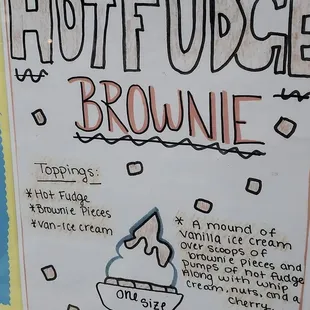 HOT FUDGE
BROWNIE
Toppings:
*Hot Fudge
*Brownie Pieces
*Van-Ice cream
* A mound of
vanilla ice cream
over scoops of
brownie pieces and
pumps of hot fudge
Along with whip
cream, nuts, and a
cherry.
one size